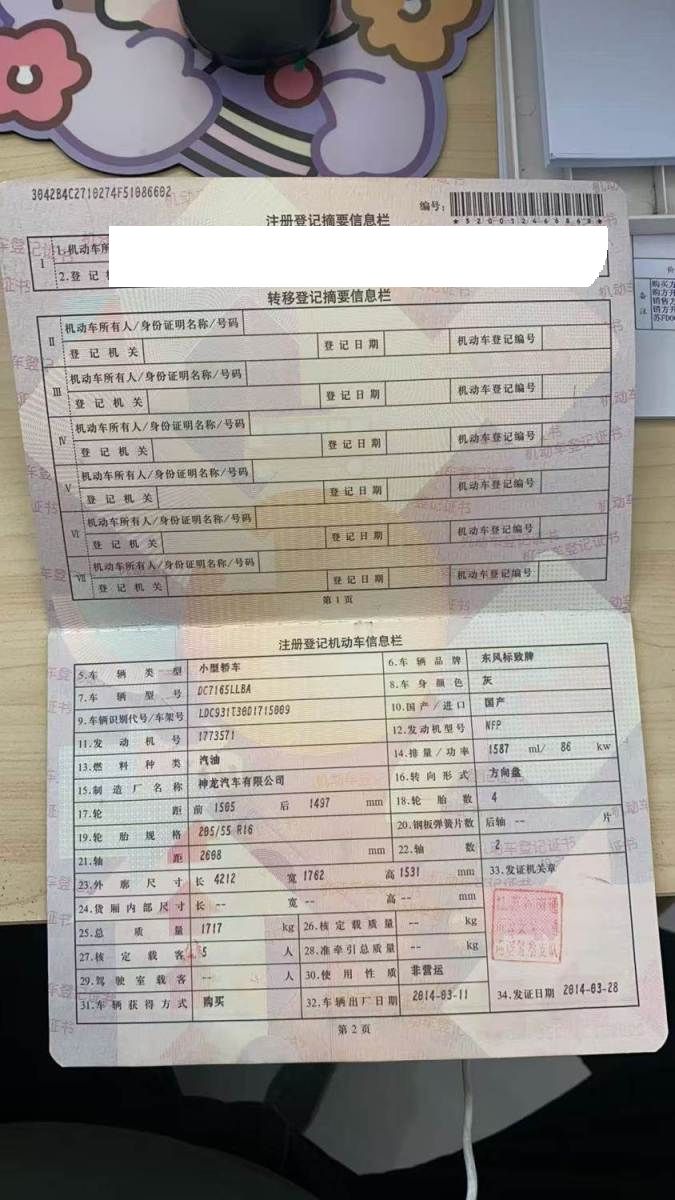 3042B4C2710274F51086602
编号:
*320012466868*
注册登记摘要信息栏
Ⅰ 1.机动车所
2.登记
转移登记摘要信息栏
Ⅱ 机动车所有人/身份证明名称/号码
登记机关 登记日期 机动车登记编号
Ⅲ 机动车所有人/身份证明名称/号码
登记机关 登记日期 机动车登记编号
Ⅳ 机动车所有人/身份证明名称/号码
登记机关 登记日期 机动车登记编号
Ⅴ 机动车所有人/身份证明名称/号码
登记机关 登记日期 机动车登记编号
Ⅵ 机动车所有人/身份证明名称/号码
登记机关 登记日期 机动车登记编号
Ⅶ 机动车所有人/身份证明名称/号码
登记机关 登记日期 机动车登记编号
第1页
注册登记机动车信息栏
5.车辆类型 小型轿车 6.车辆品牌 东风标致牌
7.车辆型号 DC7165LLBA 8.车身颜色 灰
9.车辆识别代号/车架号 LDC931T30D1715009 10.国产/进口 国产
11.发动机号 1773571 12.发动机型号 NFP
13.燃料种类 汽油 14.排量/功率 1587 ml/ 86 kw
15.制造厂名称 神龙汽车有限公司 16.转向形式 方向盘
17.轮距 前 1505 后 1497 mm 18.轮胎数 4
19.轮胎规格 205/55 R16 20.钢板弹簧片数 后轴 -- 片
21.轴距 2608 mm 22.轴数 2
23.外廓尺寸 长 4212 宽 1762 高 1531 mm 33.发证机关章
24.货厢内部尺寸 长 -- 宽 -- 高 -- mm
25.总质量 1717 kg 26.核定载质量 -- kg
27.核定载客 5 人 28.准牵引总质量 -- kg
29.驾驶室载客 -- 人 30.使用性质 非营运
31.车辆获得方式 购买 32.车辆出厂日期 2014-03-11 34.发证日期 2014-03-28
第2页